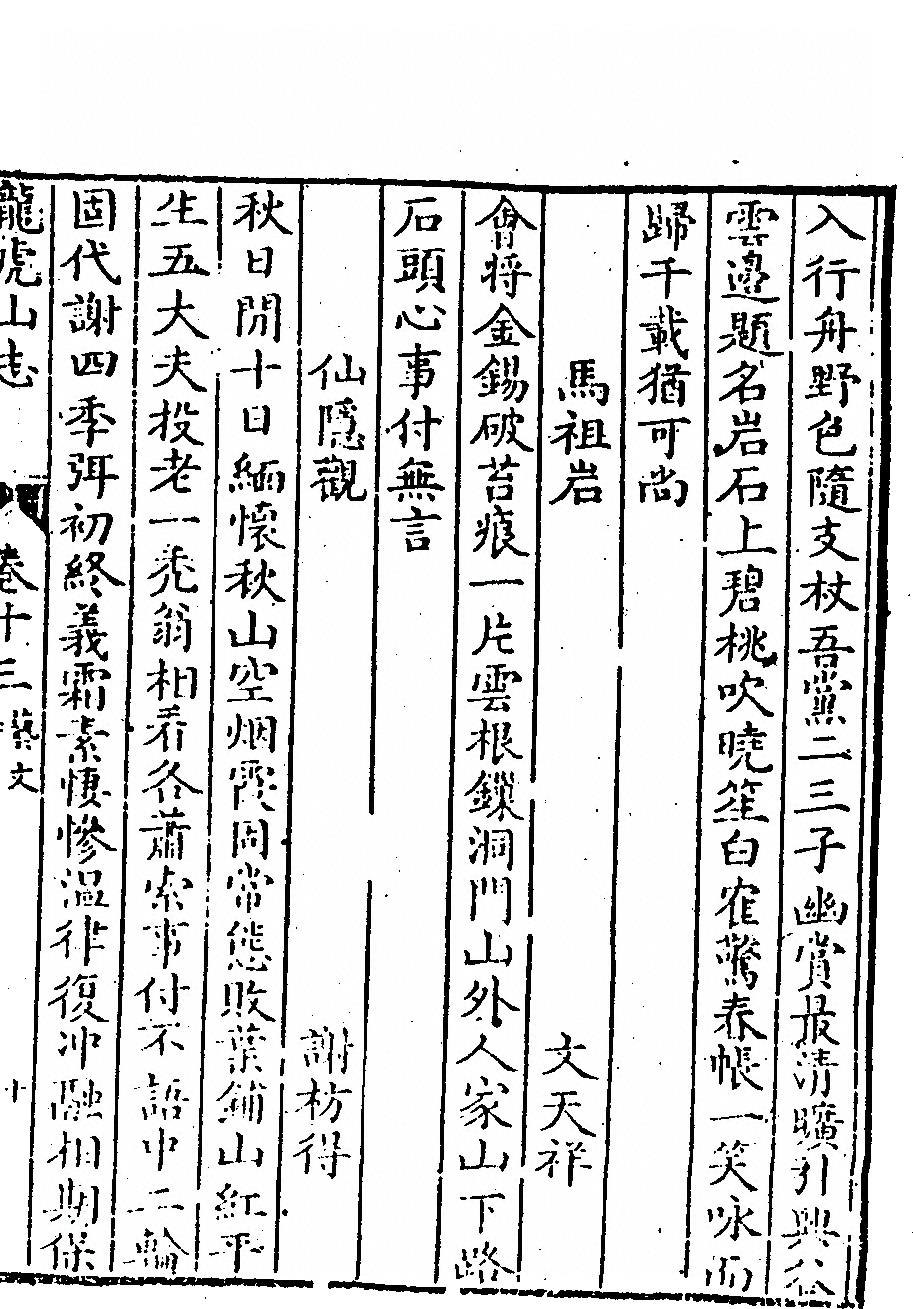 入行舟野色隨支杖吾黨二三子幽賞最清曠引興谷
雲邉題名岩石上碧桃吹曉笙白隺驚春帳一笑咏而
歸千載猶可尚
馬祖岩 文天祥
會將金錫破苔痕一片雲根鏁洞門山外人家山下路
石頭心事付無言
仙隱觀 謝枋得
秋日閒十日緬懷秋山空烟霞固常態敗葉鋪山紅平
生五大夫投老一禿翁相看各蕭索事付不語中二輪
固代謝四季弭初終義霜素悽慘温律復冲融相期保
龍虎山志 卷十三 藝文 十